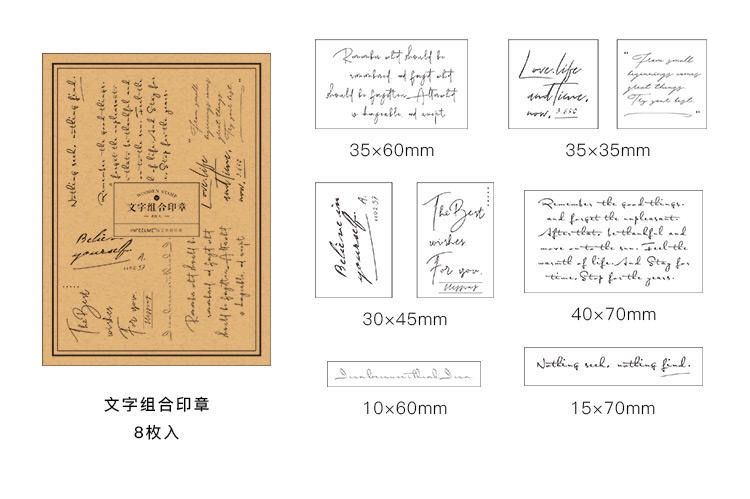 WOODEN STAMP
文字组合印章
8枚入
文字组合印章
8枚入
Remember old should be
remembered and forget old
should be forgotten. Alterold
is changeable, and accept
35×60mm
Love.life
and Time.
now.
"From small
beginnings comes
great things.
Try your best.
"
35×35mm
Believe in
yourself.
A.
1192.57
The Best
wishes
For you.
blessing
30×45mm
Remember the good things.
and forget the unpleasant.
After that, be thankful and
move on to the sun. Feel the
warmth of life. And Stay for
time. Stop for the years.
40×70mm
10×60mm
Nothing seek, nothing find.
15×70mm